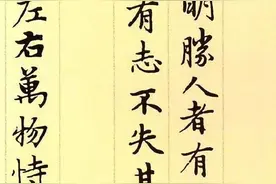 明勝人者有
有志不失其
左右萬物恃